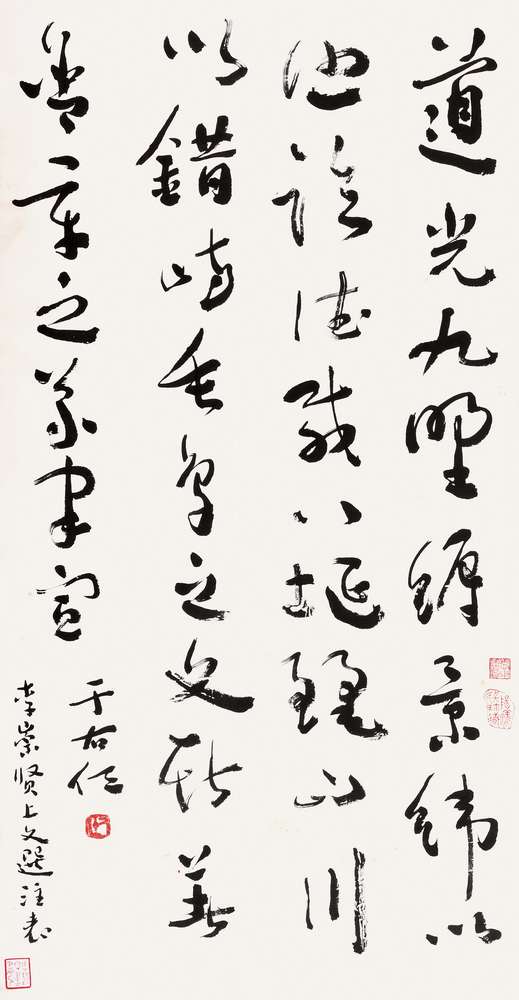 道光九野縟景緯以
照臨德載八埏麗山川
以錯峙垂象之文斯著
含章之義聿宣
于右任
李崇賢上文選注表